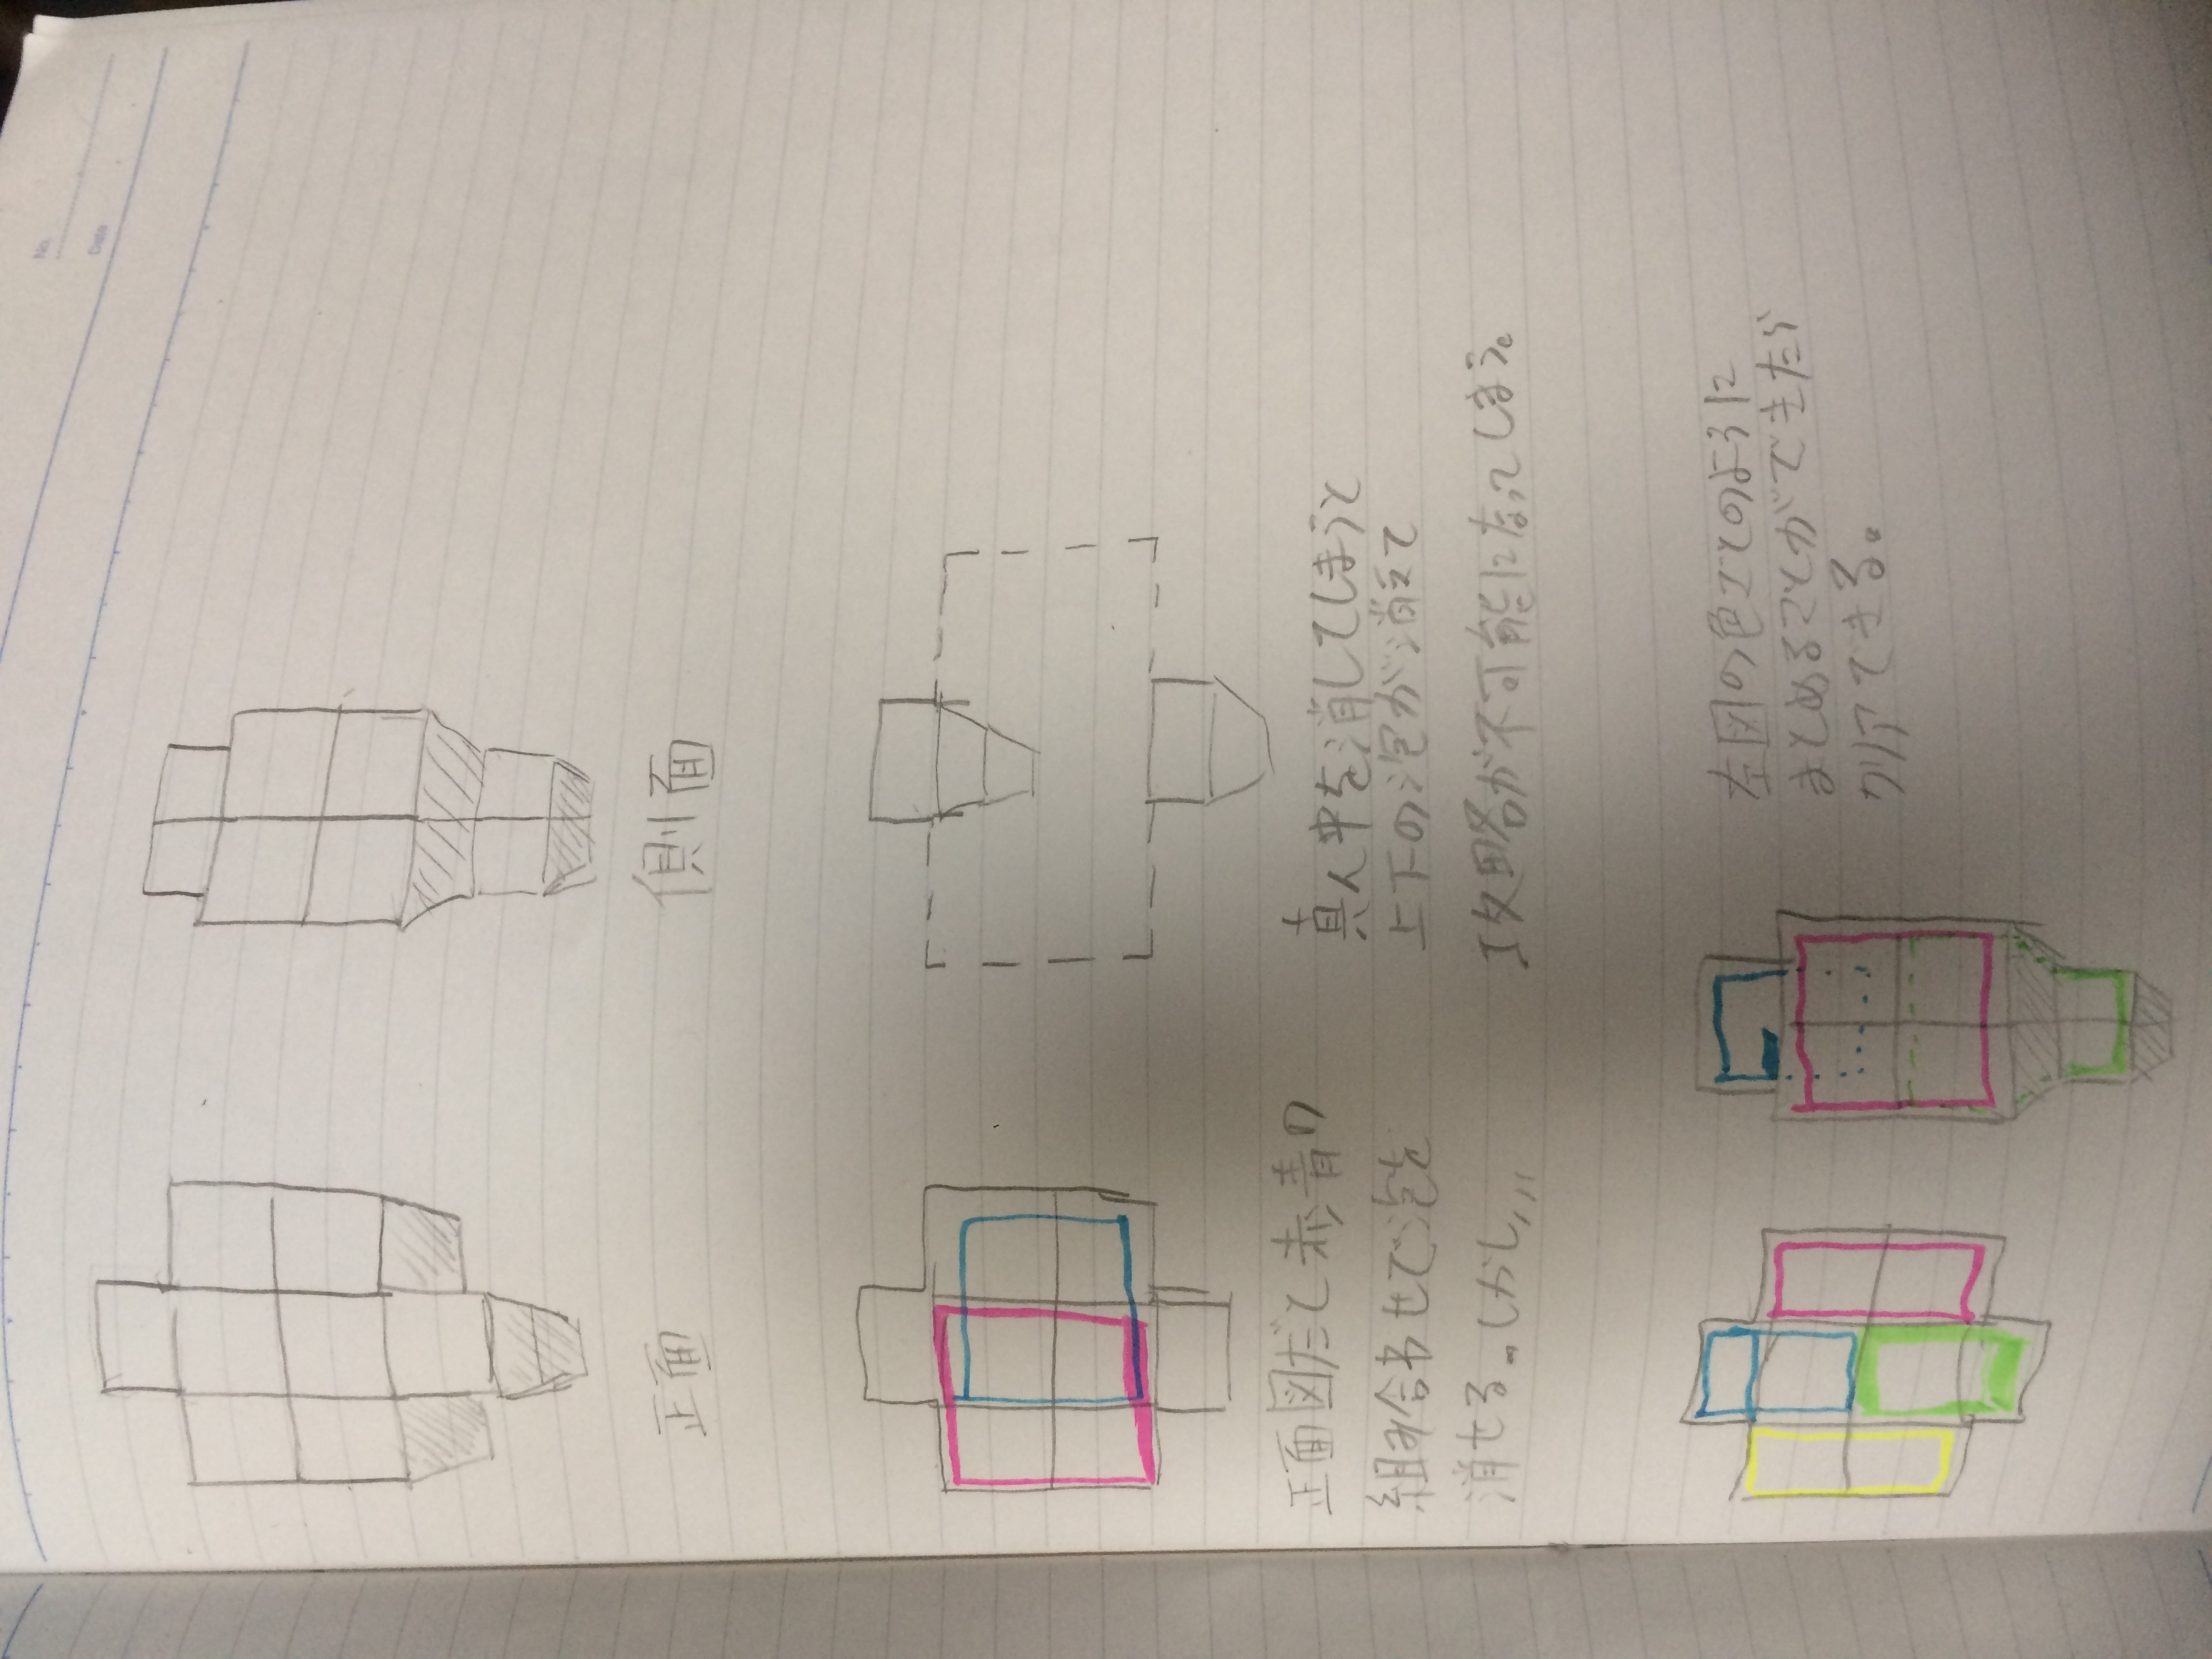 No.
Date
正面
側面
正面図だと赤,青の
組み合わせで泡を
消せる。しかし,,,
真ん中を消してしまうと
上下の泡が消えて
攻略が不可能になってしまう。
左図の色ごとのように
まとめることができたら
クリアできる。